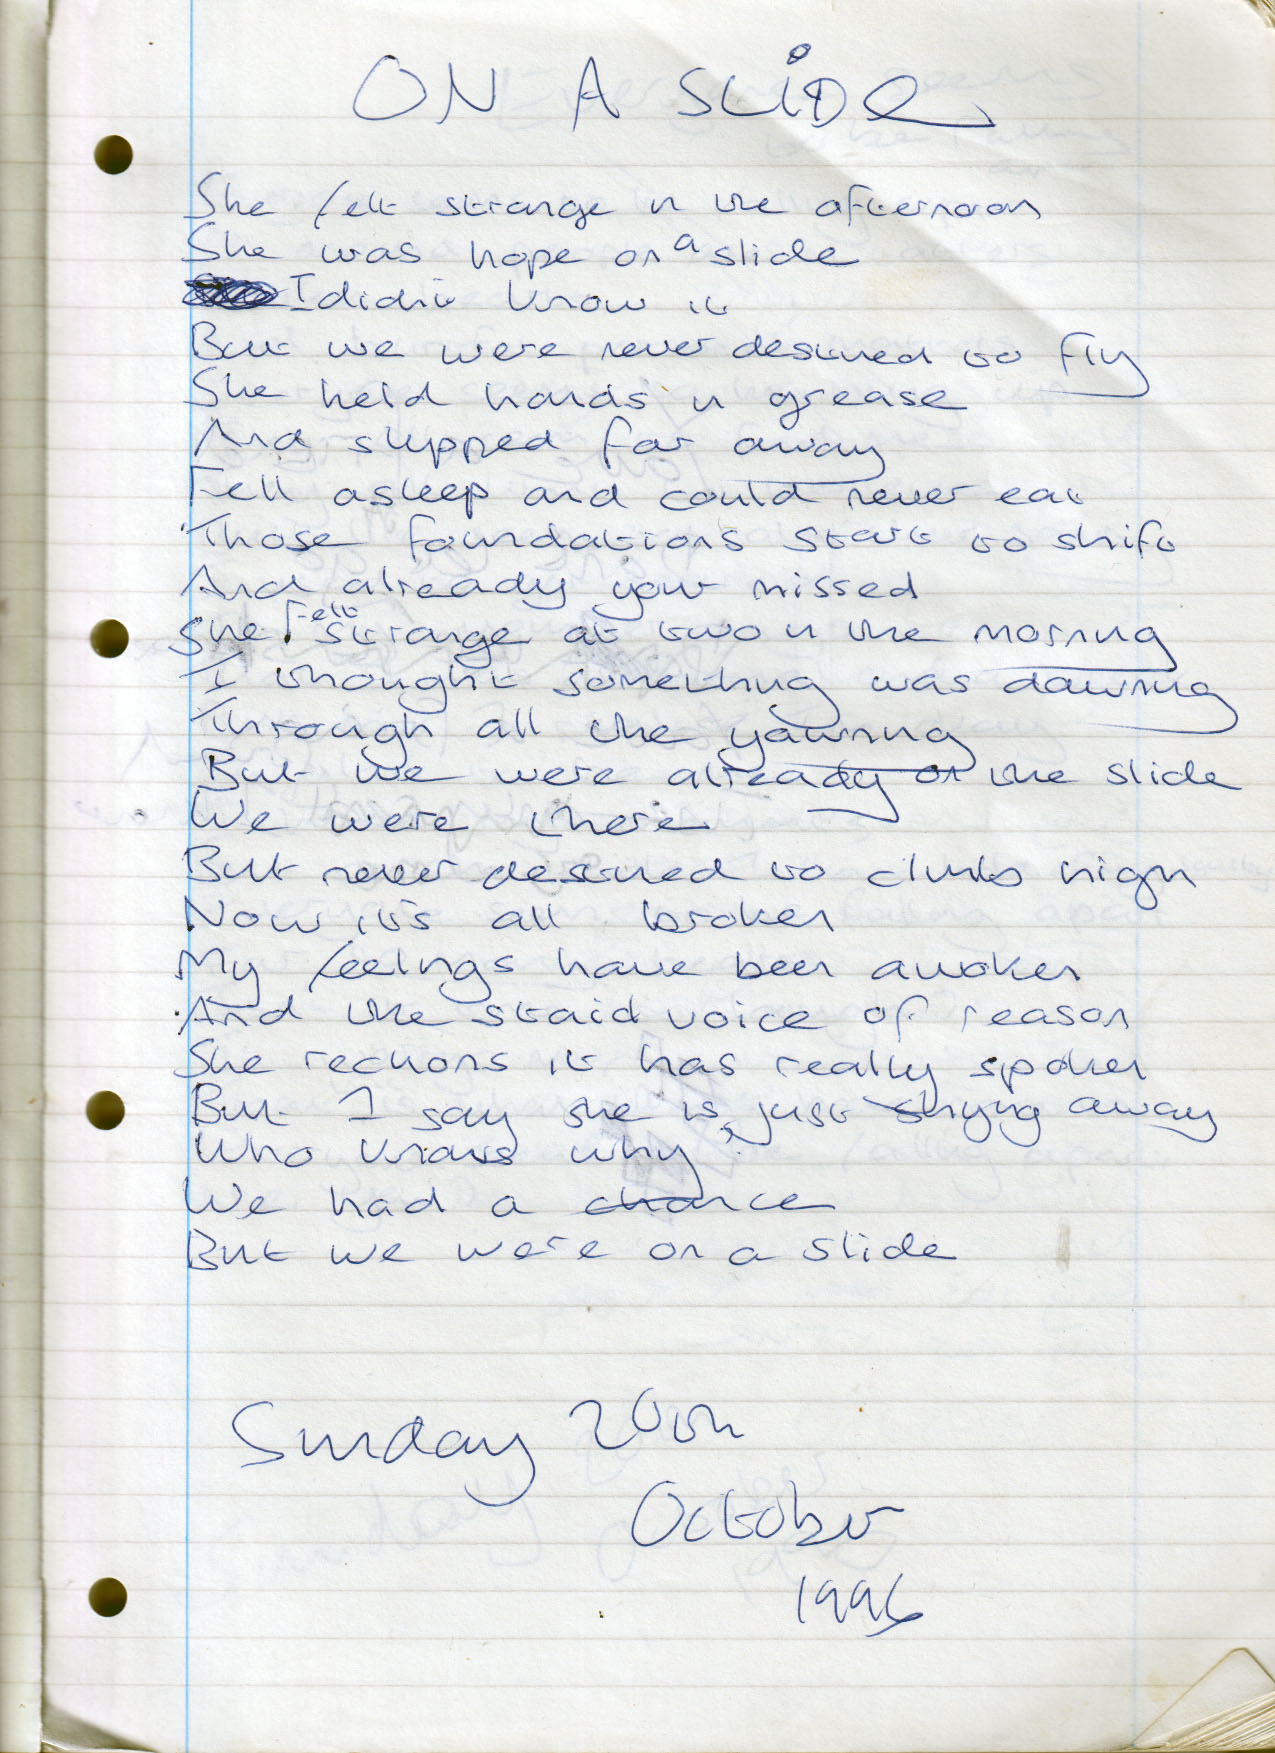 ON A SLIDE
She felt strange in the afternoon
She was hope on a slide
I didn't know it
But we were never destined to fly
She held hands in grease
And slipped far away
Fell asleep and could never eat
Those foundations start to shift
And already your missed
She felt strange at two in the morning
I thought something was dawning
Through all the yawning
But we were already on the slide
We were there
But never destined to climb high
Now it's all broken
My feelings have been awoken
And the staid voice of reason
She reckons it has really spoken
But I say she is just shying away
Who knows why
We had a chance
But we were on a slide
Sunday 20th
October
1996